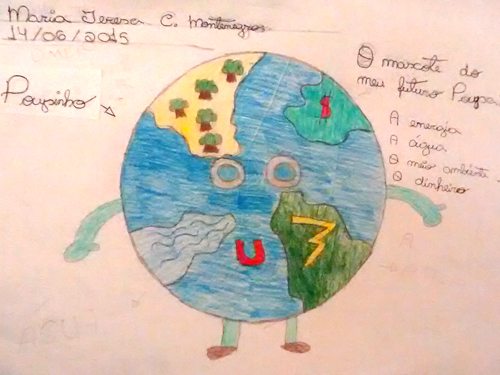 Maria Teresa C. Montenegro
14/06/2015
Poupinho
O mascote do
meu futuro Poupa
A energia
A água
O meio ambiente
O dinheiro
$